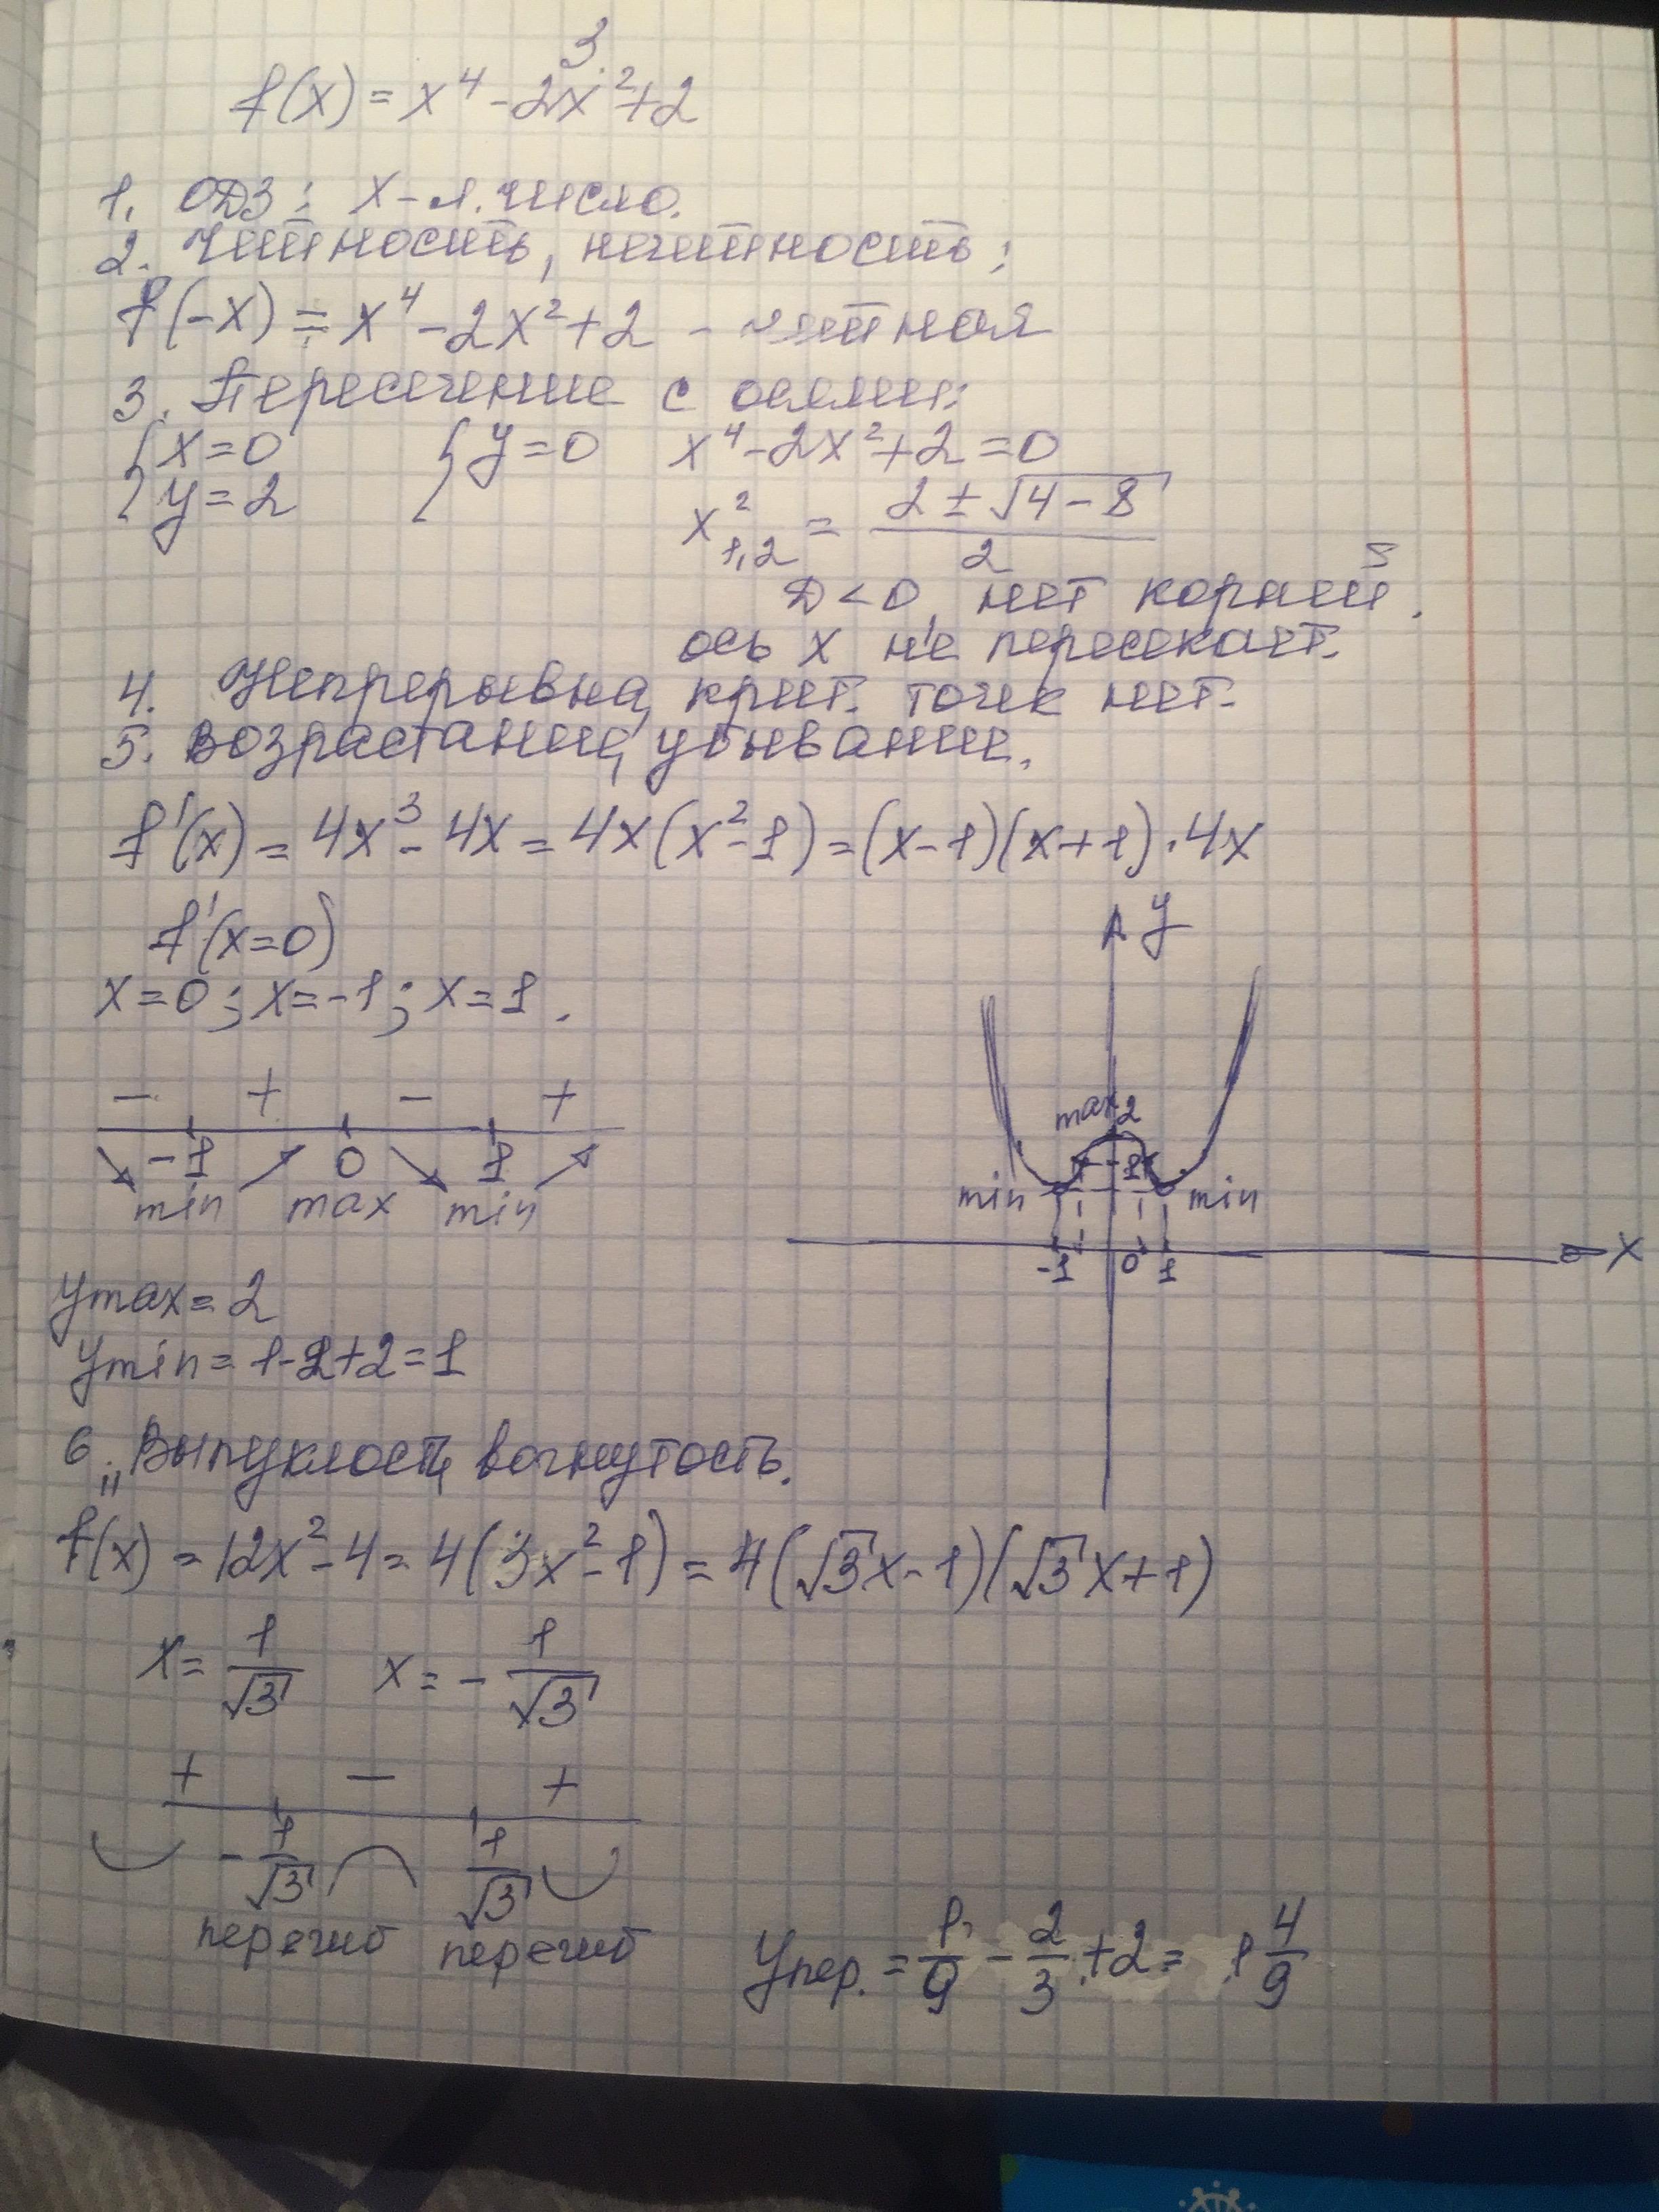 3.
f(x) = x⁴ - 2x² + 2
1. ОДЗ: x - л. число.
2. Четность, нечетность:
f(-x) = x⁴ - 2x² + 2 - четная
3. Пересечение с осями:
{x = 0 {y = 0 x⁴ - 2x² + 2 = 0
{y = 2 x²₁,₂ = (2 ± √(4 - 8))/2
D < 0, нет корней.
ось x не пересекает.
4. Непрерывна, крит. точек нет.
5. Возрастание, убывание.
f'(x) = 4x³ - 4x = 4x(x² - 1) = (x - 1)(x + 1) · 4x
f'(x = 0)
x = 0; x = -1; x = 1.
- + - +
-1 0 1
min max min
y
max 2
1
min min
-1 0 1 x
ymax = 2
ymin = 1 - 2 + 2 = 1
6. Выпуклость, вогнутость.
f''(x) = 12x² - 4 = 4(3x² - 1) = 4(√3x - 1)(√3x + 1)
x = 1/√3 x = -1/√3
+ - +
-1/√3 1/√3
перегиб перегиб
yпер. = 1/9 - 2/3 + 2 = 1 4/9